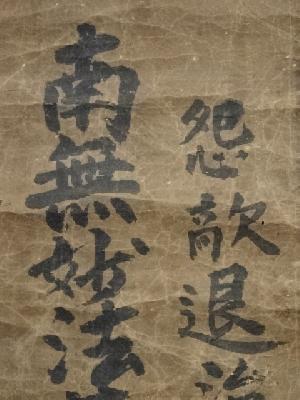 怨敵退治
南無妙法